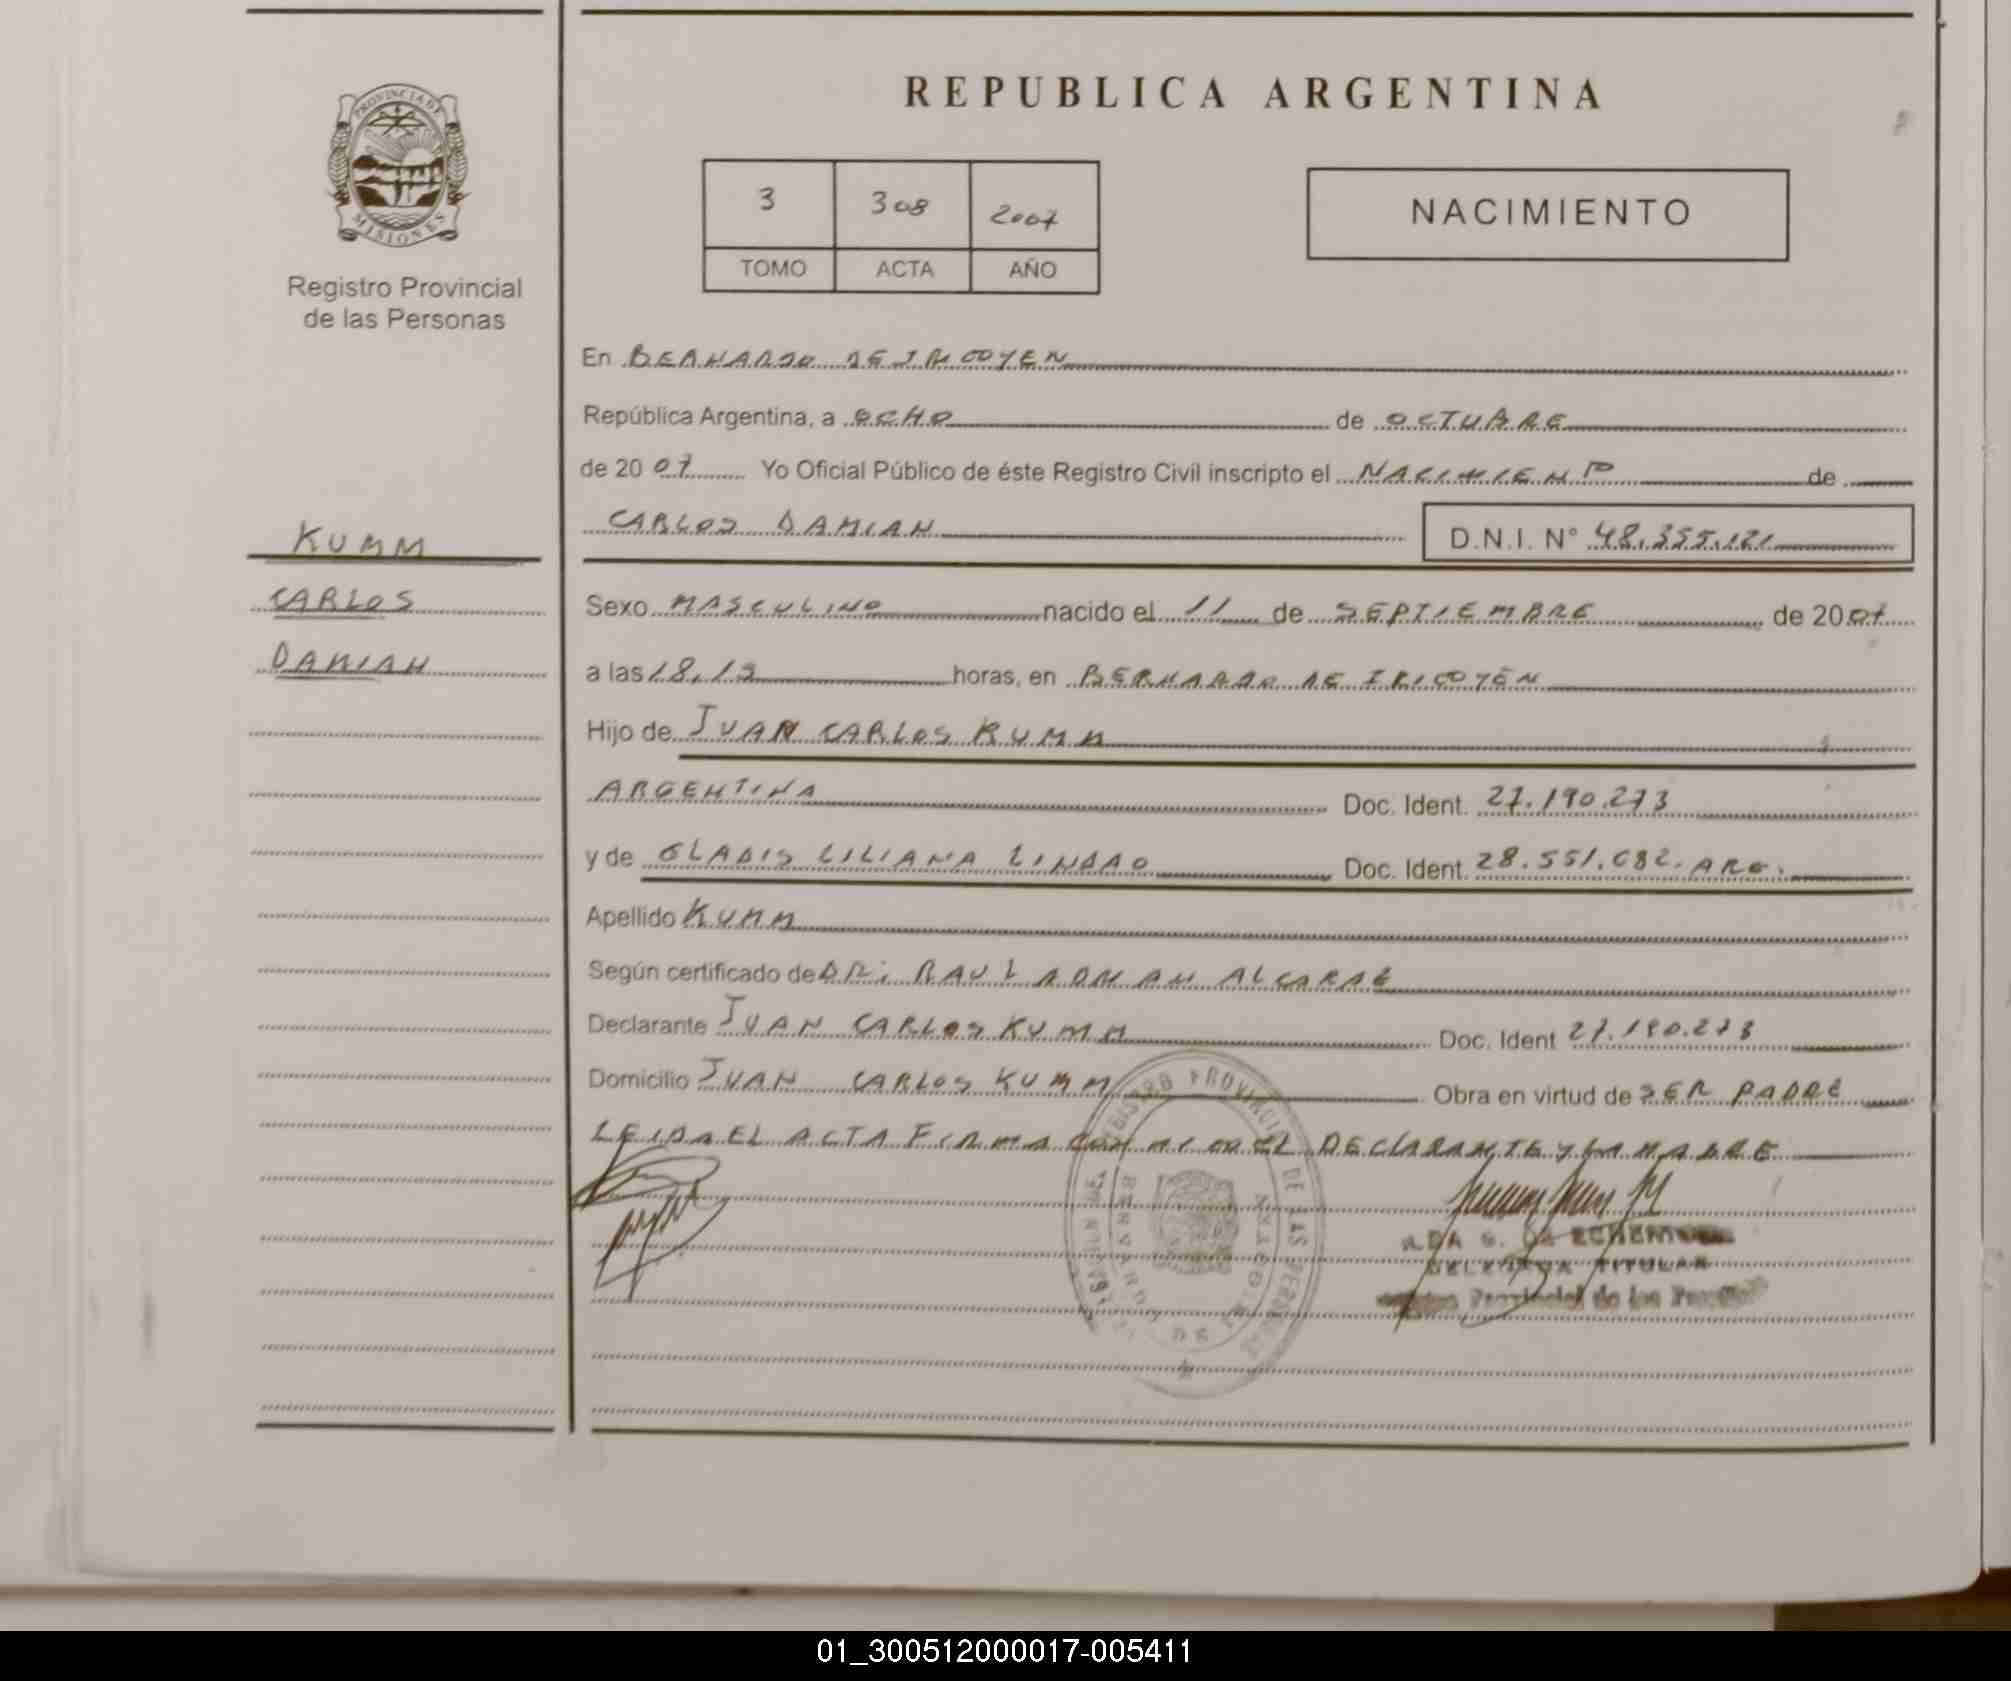 PROVINCIA DE
MISIONES
Registro Provincial
de las Personas
KUMM
CARLOS
DAMIAN
REPUBLICA ARGENTINA
3 308 2007
TOMO ACTA AÑO
NACIMIENTO
En BERNARDO DE IRIGOYEN
República Argentina, a OCHO de OCTUBRE
de 20 07 Yo Oficial Público de éste Registro Civil inscripto el NACIMIENTO de
CARLOS DAMIAN D.N.I. N° 48.355.121
Sexo MASCULINO nacido el 11 de SEPTIEMBRE de 2007
a las 18,15 horas, en BERNARDO DE IRIGOYEN
Hijo de JUAN CARLOS KUMM
ARGENTINA Doc. Ident. 27.190.273
y de GLADIS LILIANA Doc. Ident. 28.551.682. ARG.
Apellido KUMM
Según certificado de DR: RAUL ALCARAZ
Declarante JUAN CARLOS KUMM Doc. Ident 27.190.273
Domicilio JUAN CARLOS KUMM Obra en virtud de SER PADRE
LEIDA EL ACTA FIRMA CON MIGO EL DECLARANTE Y LA MADRE
REGISTRO PROVINCIAL DE LAS PERSONAS
TITULAR
Provincial de las
01_300512000017-005411